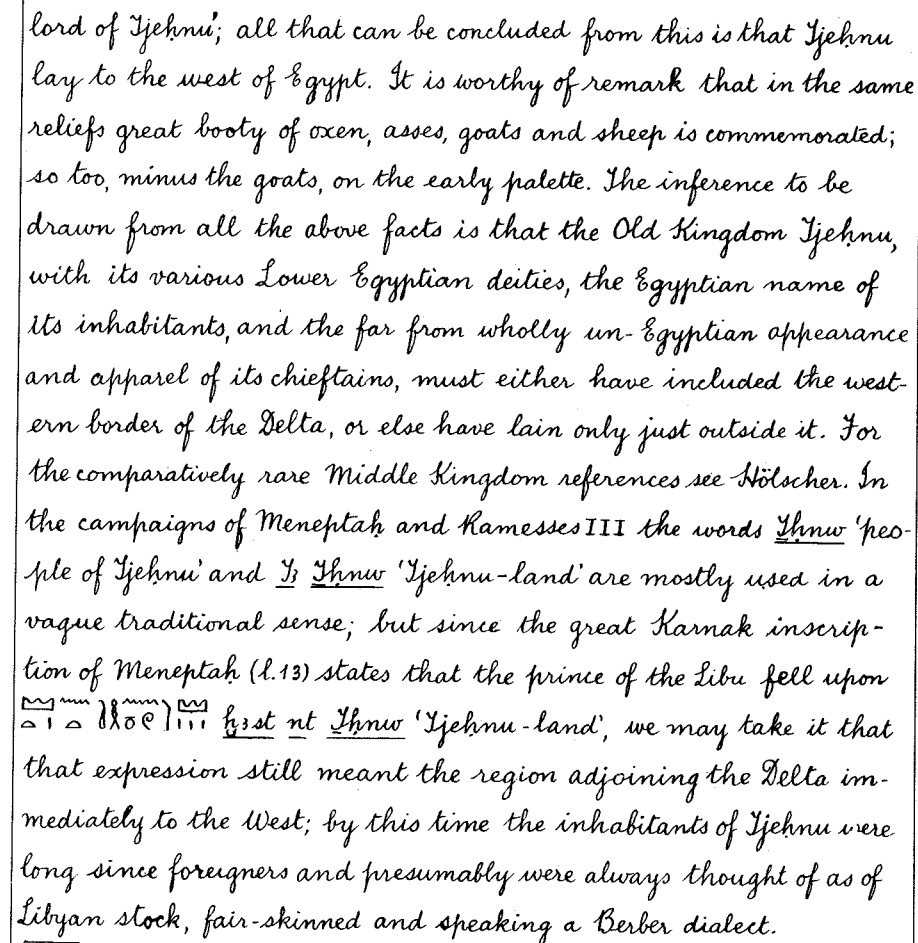 lord of Tjeḥnu'; all that can be concluded from this is that Tjeḥnu
lay to the west of Egypt. It is worthy of remark that in the same
reliefs great booty of oxen, asses, goats and sheep is commemorated;
so too, minus the goats, on the early palette. The inference to be
drawn from all the above facts is that the Old Kingdom Tjeḥnu,
with its various Lower Egyptian deities, the Egyptian name of
its inhabitants, and the far from wholly un-Egyptian appearance
and apparel of its chieftains, must either have included the west-
ern border of the Delta, or else have lain only just outside it. For
the comparatively rare Middle Kingdom references see Hölscher. In
the campaigns of Meneptaḥ and Ramesses III the words Ṯḥnw 'peo-
ple of Tjeḥnu' and Tꜣ Ṯḥnw 'Tjeḥnu-land' are mostly used in a
vague traditional sense; but since the great Karnak inscrip-
tion of Meneptaḥ (l.13) states that the prince of the Libu fell upon
ḫꜣst nt Ṯḥnw 'Tjeḥnu-land', we may take it that
that expression still meant the region adjoining the Delta im-
mediately to the West; by this time the inhabitants of Tjeḥnu were
long since foreigners and presumably were always thought of as of
Libyan stock, fair-skinned and speaking a Berber dialect.